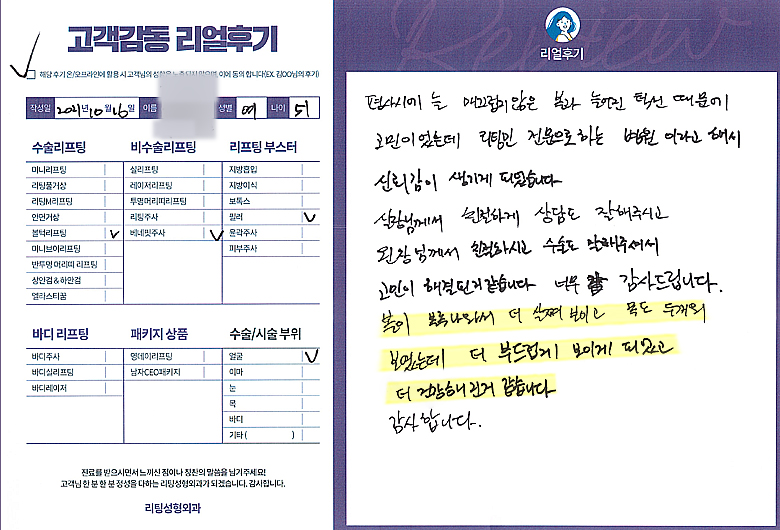 고객감동 리얼후기
해당 후기 온/오프라인에 활용 시 고객님의 성함은 노출되지 않으며, 이에 동의 합니다(EX. 김OO님의 후기)
작성일 2021년 10월 16일 이름 성별 여 나이 51
수술리프팅
미니리프팅
리팅풀거상
리팅M리프팅
안면거상
본턱리프팅
미니브이리프팅
반투명 머리띠 리프팅
상안검 & 하안검
엘라스티꿈
비수술리프팅
실리프팅
레이저리프팅
투명머리띠리프팅
리팅주사
비네빗주사
리프팅 부스터
지방흡입
지방이식
보톡스
필러
윤곽주사
피부주사
바디 리프팅
바디주사
바디실리프팅
바디레이저
패키지 상품
원데이리프팅
남자CEO패키지
수술/시술 부위
얼굴
이마
눈
목
바디
기타 ( )
진료를 받으시면서 느끼신 점이나 칭찬의 말씀을 남겨주세요!
고객님 한 분 한 분 정성을 다하는 리팅성형외과가 되겠습니다. 감사합니다.
리팅성형외과
Review
리얼후기
평상시에 늘 매끄럽지않은 볼과 늘어진 턱선 때문에
고민이었는데 리팅만 전문으로하는 병원 이라고 해서
신뢰감이 생기게 되었습니다
실장님께서 친절하게 상담도 잘해주시고
원장님께서 친절하시고 수술도 잘해주셔서
고민이 해결된거 같습니다 너무 감사드립니다.
볼이 볼록나와서 더 살쪄 보이고 목도 두꺼워
보였는데 더 부드럽게 보이게 되었고
더 건강해진거 같습니다
감사합니다.